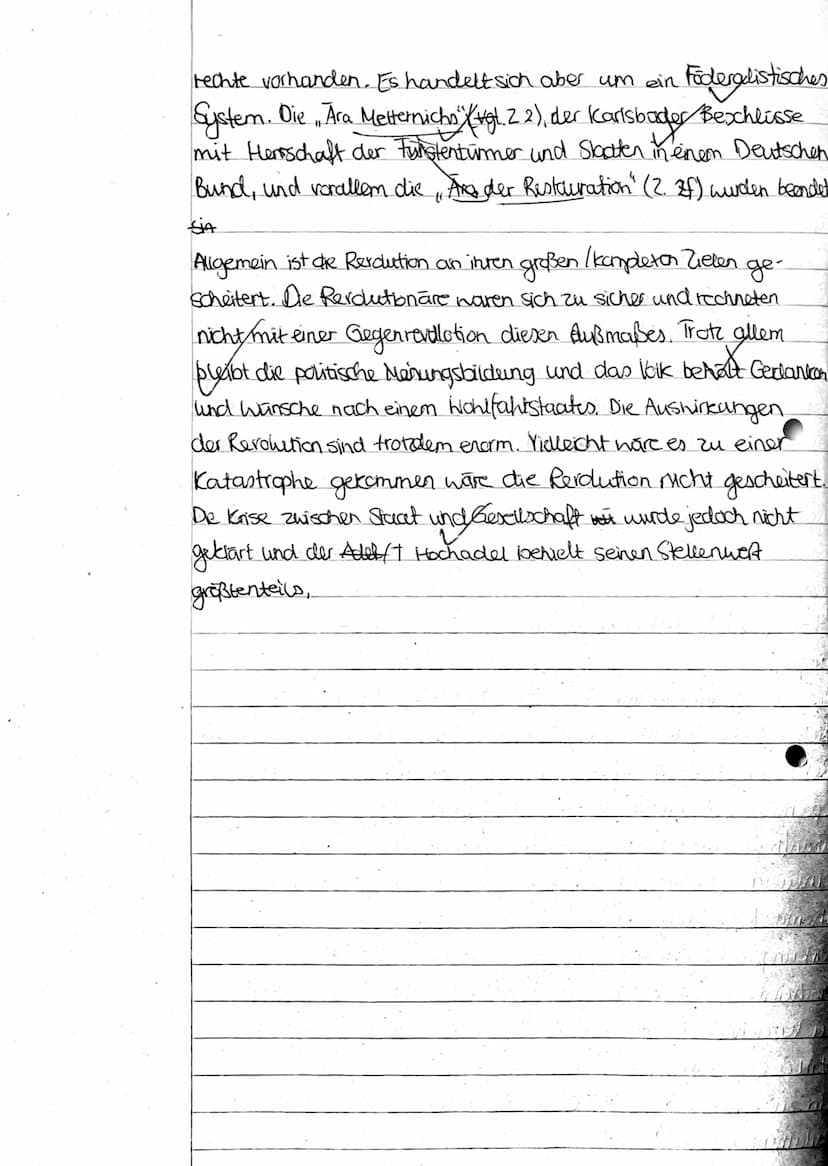 rechte vorhanden. Es handelt sich aber um ein Föderalistisches
System. Die „Ära Metternichs" (vgl. Z 2), der Karlsbader Beschlüsse
mit Herrschaft der Fürstentümer und Staaten in einem Deutschen
Bund, und vorallem die „Ära der Restauration" (Z. 3f) wurden beendet
Allgemein ist die Revolution an ihren großen / komplexen Zielen ge-
scheitert. Die Revolutionäre waren sich zu sicher und rechneten
nicht mit einer Gegenrevolution diesen Außmaßes. Trotz allem
bleibt die politische Meinungsbildung und das Volk behält Gedanken
und Wünsche nach einem Wohlfahtstaates. Die Auswirkungen
der Revolution sind trotzdem enorm. Vielleicht wäre es zu einer
Katastrophe gekommen wäre die Revolution nicht gescheitert.
Die Krise zwischen Staat und Gesellschaft wurde jedoch nicht
geklärt und der Hochadel behielt seinen Stellenwert
größtenteils.